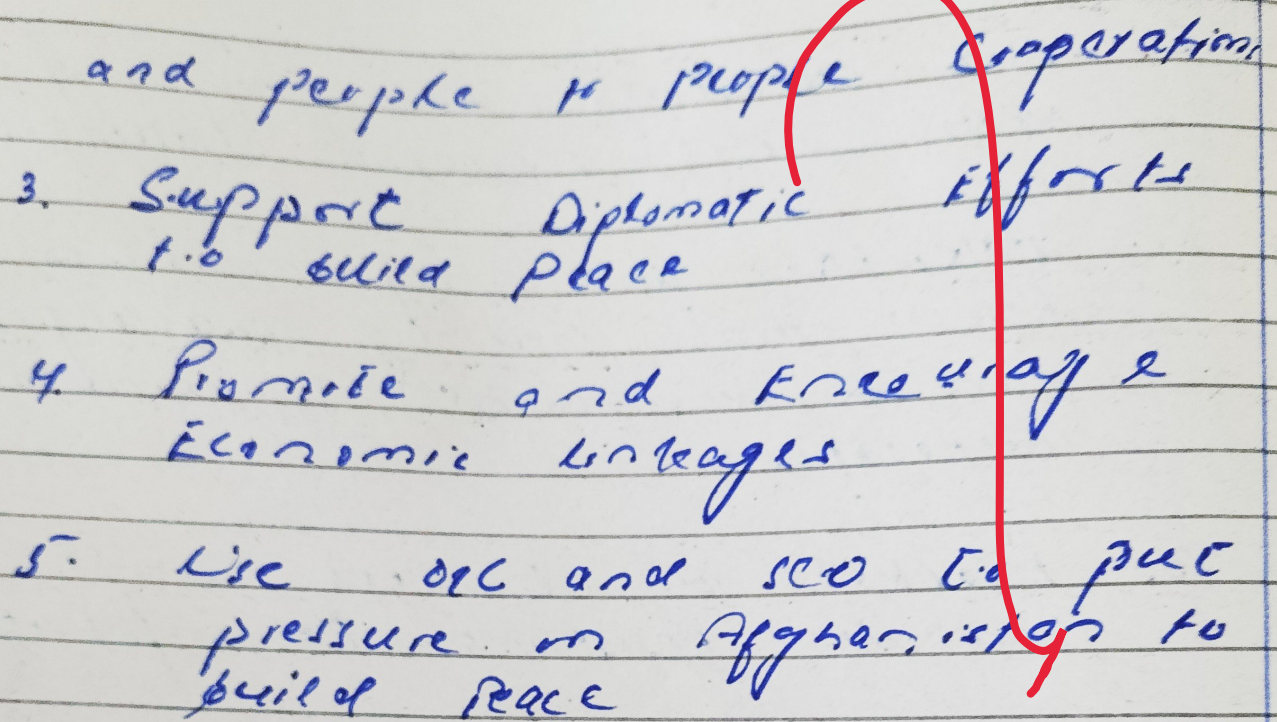 and people to people Cooperation.
3. Support Diplomatic Efforts
to build Peace
4. Promote and Encourage
Economic linkages
5. Use OIC and SCO to put
pressure on Afghanistan to
build Peace